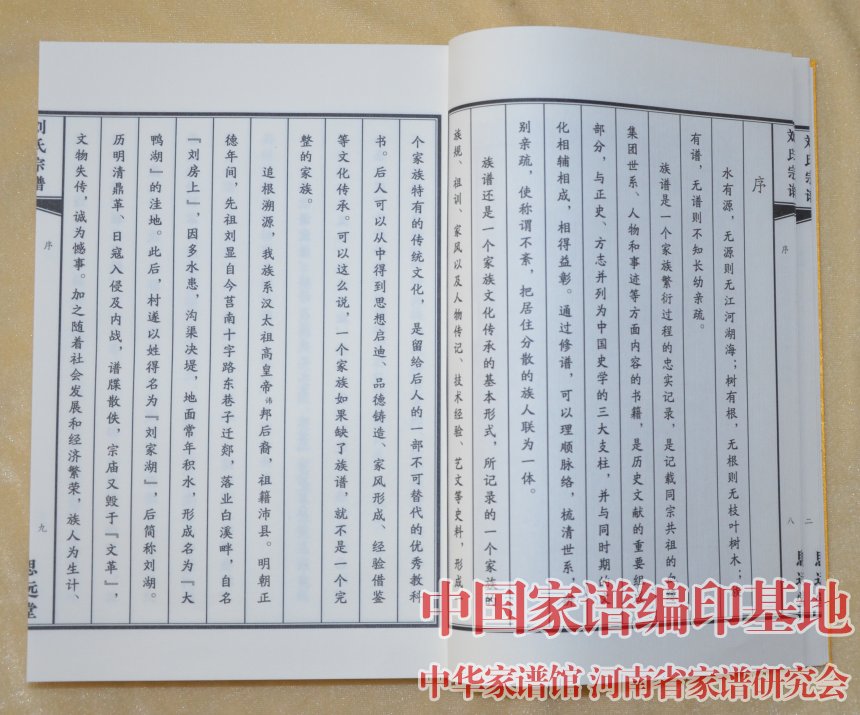 序
水有源，无源则无江河湖海；树有根，无根则无枝叶树木；
有谱，无谱则不知长幼亲疏。
族谱是一个家族繁衍过程的忠实记录，是记载同宗共祖的
集团世系、人物和事迹等方面内容的书籍，是历史文献的重要组
部分，与正史、方志并列为中国史学的三大支柱，并与同时期的
化相辅相成，相得益彰。通过修谱，可以理顺脉络，梳清世系，
别亲疏，使称谓不紊，把居住分散的族人联为一体。
族谱还是一个家族文化传承的基本形式，所记录的一个家族
族规、祖训、家风以及人物传记、技术经验、艺文等史料，形成
刘氏宗谱
序
八
二
个家族特有的传统文化，是留给后人的一部不可替代的优秀教科
书。后人可以从中得到思想启迪、品德铸造、家风形成、经验借鉴
等文化传承。可以这么说，一个家族如果缺了族谱，就不是一个完
整的家族。
追根溯源，我族系汉太祖高皇帝讳邦后裔，祖籍沛县。明朝正
德年间，先祖刘显自今莒南十字路东巷子迁郯，落业白溪畔，自名
『刘房上』，因多水患，沟渠决堤，地面常年积水，形成名为『大
鸭湖』的洼地。此后，村遂以姓得名为『刘家湖』，后简称刘湖。
历明清鼎革、日寇入侵及内战，谱牒散佚，宗庙又毁于『文革』，
文物失传，诚为憾事。加之随着社会发展和经济繁荣，族人为生计、
刘氏宗谱
序
九
思远堂
中国家谱编印基地
中华家谱馆 河南省家谱研究会